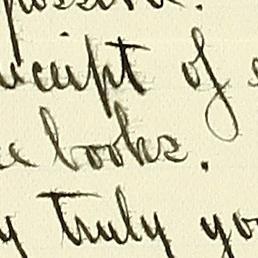 possible.
receipt of
books.
truly yo